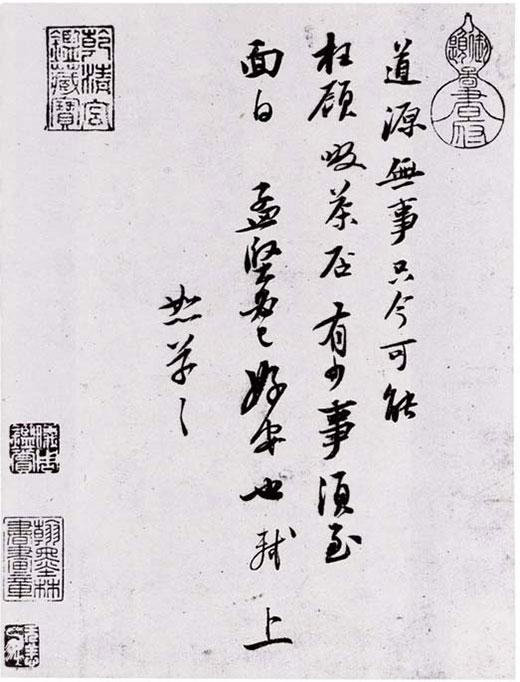 道源無事只今可能
枉顧啜茶否有少事須至
面白孟堅必已好安也軾上
恕草〻
乾清宮
鑑藏寶
翰墨林
書畫章